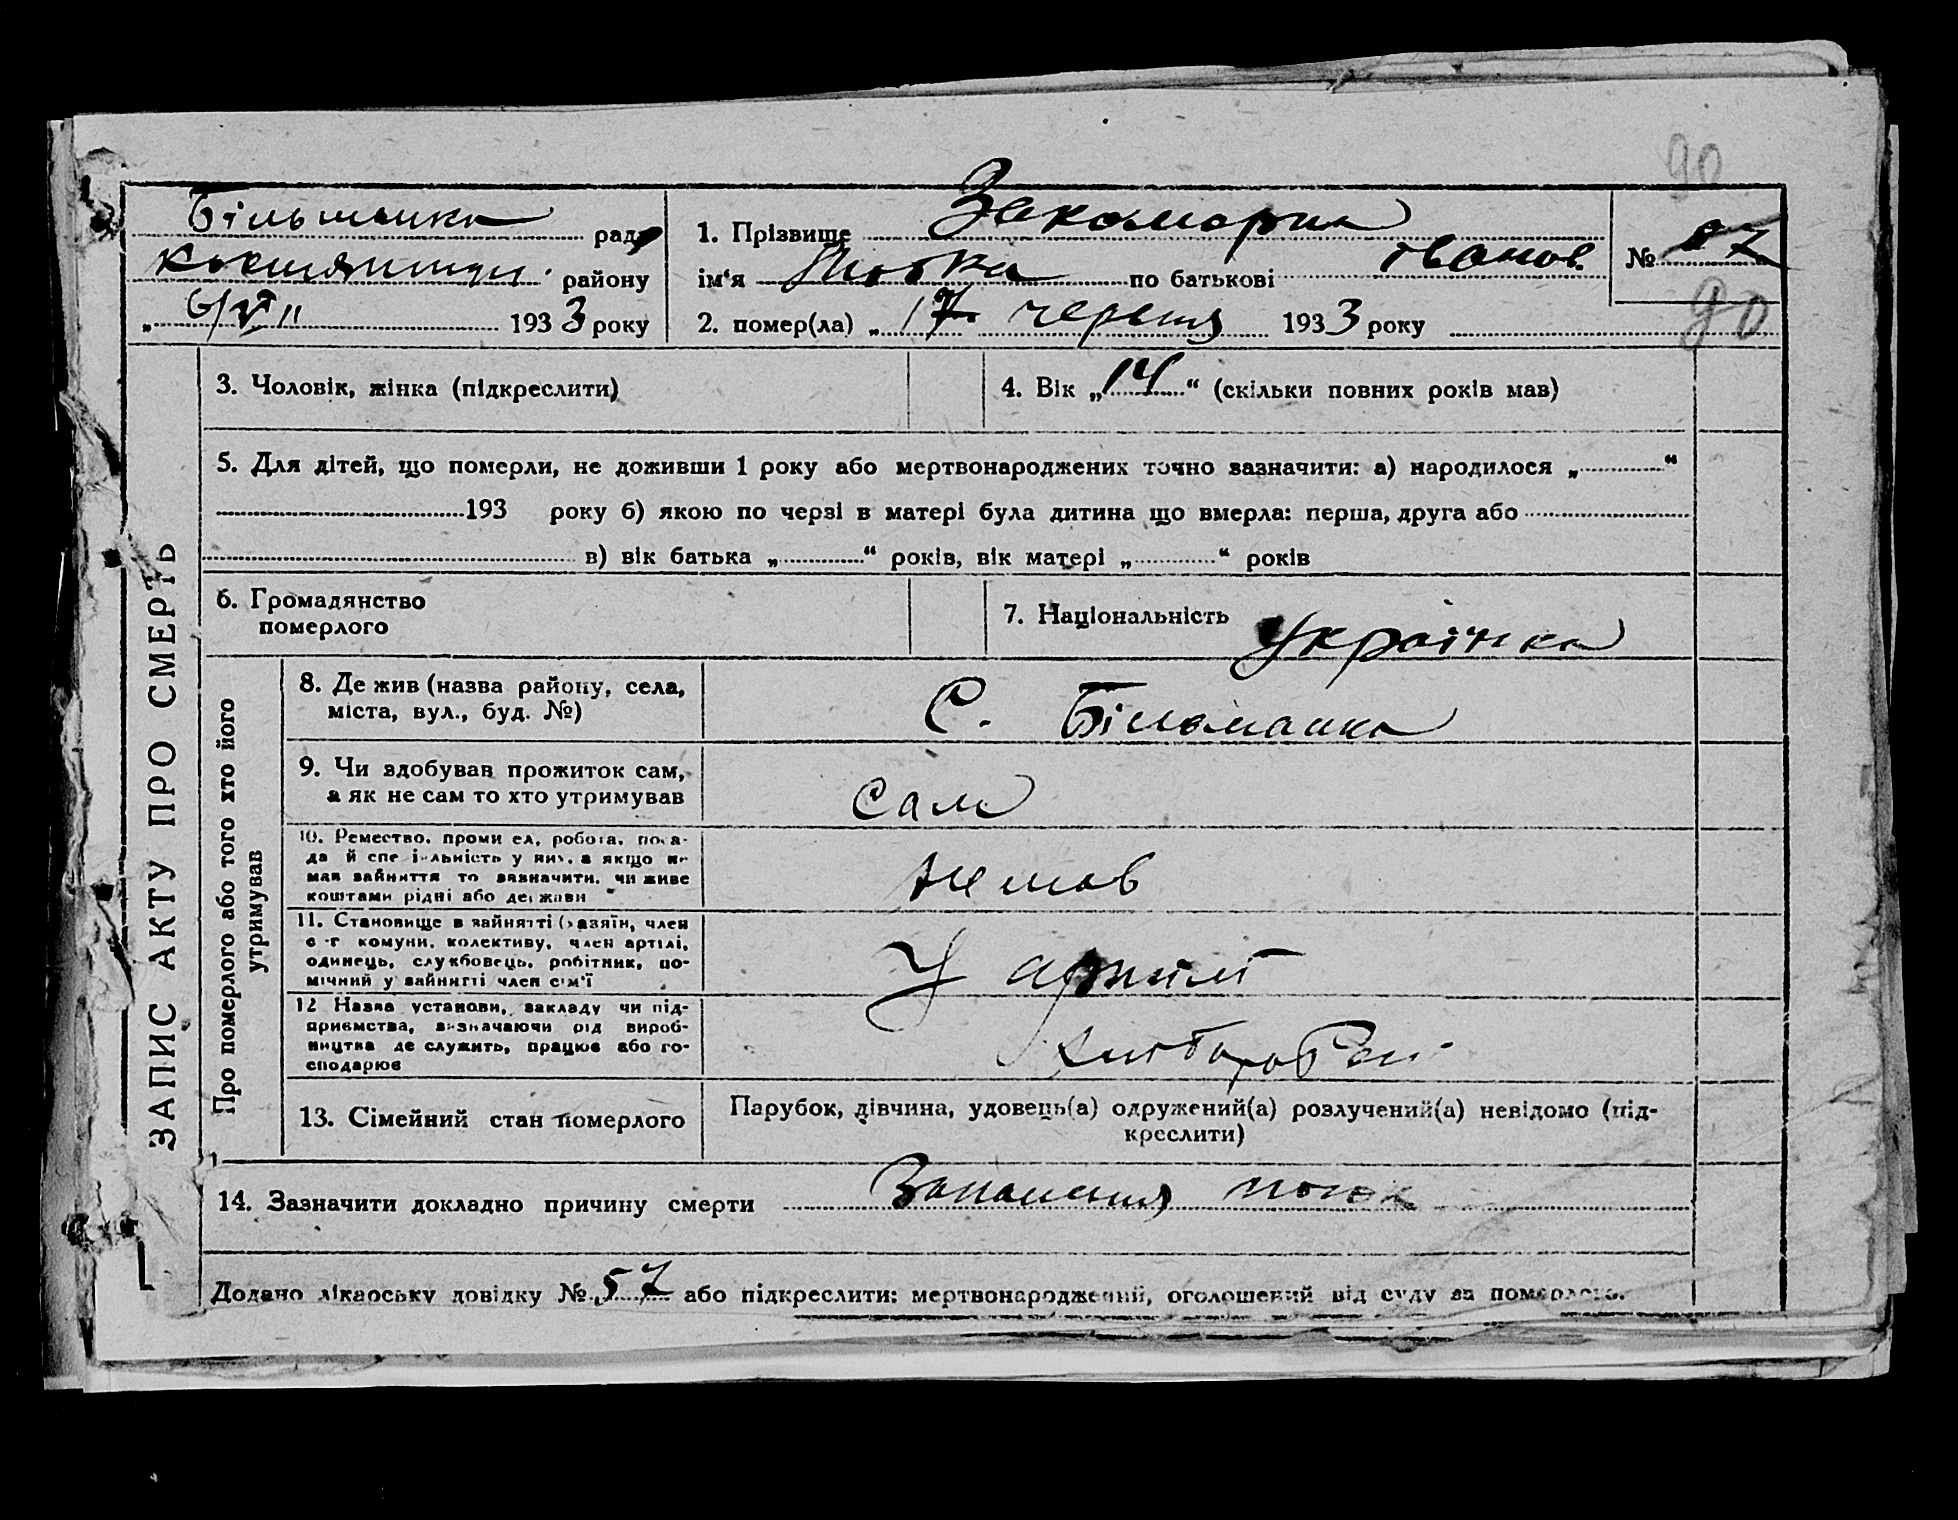 90
Більманка рада
району
„ 6/VII 1933 року
1. Прізвище Закоморна
ім'я по батькові Іванов.
2. помер(ла) „ 17 червня 1933 року
№ 87
90
ЗАПИС АКТУ ПРО СМЕРТЬ
3. Чоловік, жінка (підкреслити)
4. Вік „14“ (скільки повних років мав)
5. Для дітей, що померли, не доживши 1 року або мертвонароджених точно зазначити: а) народилося „ “
193 року б) якою по черзі в матері була дитина що вмерла: перша, друга або
в) вік батька „ “ років, вік матері „ “ років
6. Громадянство
померлого
7. Національність Українка
Про померлого або того хто його
утримував
8. Де жив (назва району, села,
міста, вул., буд. №)
С. Більманка
9. Чи здобував прожиток сам,
а як не сам то хто утримував
Сам
10. Ремество, проми ел, робота, поса-
да й спеціяльність у них, а якщо не
мав зайняття то зазначити, чи живе
коштами рідні або держави
Не мав
11. Становище в зайнятті (хазяїн, член
с-г комуни, колективу, член артілі,
одинець, службовець, робітник, по-
мічний у зайнятті член сім'ї
У артілі
12 Назва установи, закладу чи під-
приємства, зазначаючи рід вироб-
ництва де служить, працює або го-
сподарює
13. Сімейний стан померлого
Парубок, дівчина, удовець(а) одружений(а) розлучений(а) невідомо (під-
креслити)
14. Зазначити докладно причину смерти Запалення
Додано лікарську довідку № 57 або підкреслити: мертвонароджений, оголошений від суду за померлого.